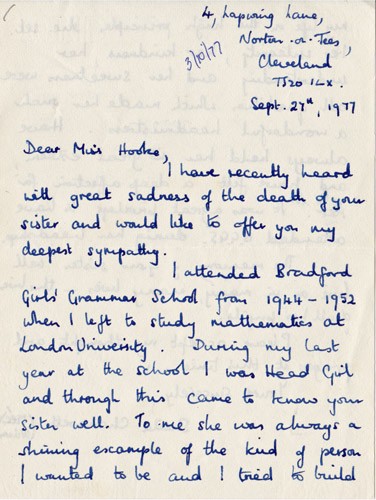 4, Lapwing Lane,
Norton-on-Tees,
3/10/77
Cleveland
TS20 1LX.
Sept. 27th, 1977
Dear Miss Hooke,
I have recently heard
with great sadness of the death of your
sister and would like to offer you my
deepest sympathy.
I attended Bradford
Girls' Grammar School from 1944 - 1952
when I left to study mathematics at
London University. During my last
year at the school I was Head Girl
and through this came to know your
sister well. To me she was always a
shining example of the kind of person
I wanted to be and I tried to build